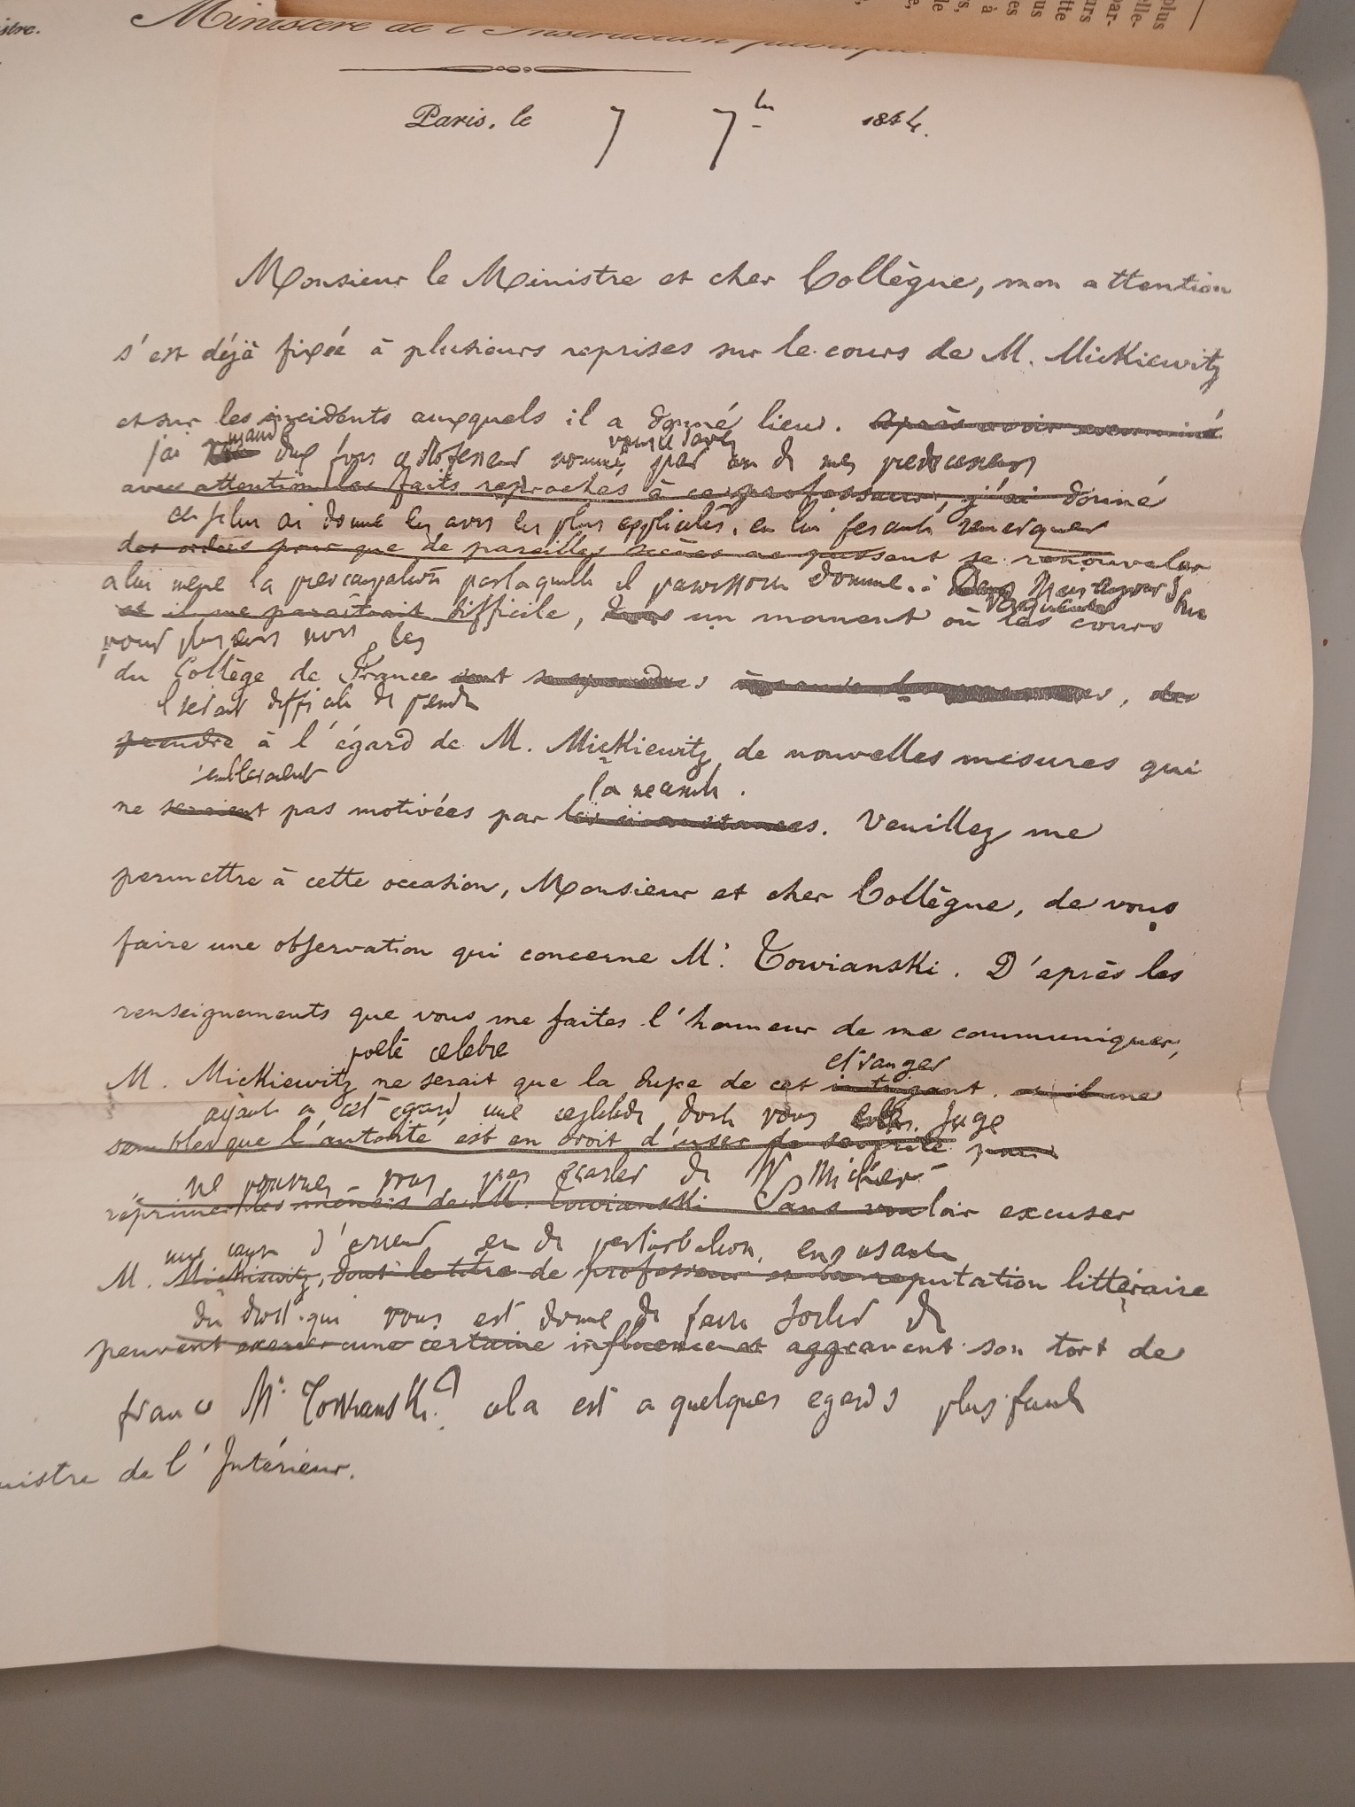 Ministère de l'Instruction publique.
Paris, le 7 7bre 1844.
Monsieur le Ministre et cher Collègue, mon attention
s'est déjà fixée à plusieurs reprises sur le cours de M. Mickiewitz
et sur les incidents auxquels il a donné lieu. après avoir examiné
j'ai mandé deux fois ce Professeur nommé par un de mes predecesseurs
avec attention les faits reprochés à ce professeur, j'ai donné
et lui ai donné les avis les plus explicites, en lui fesant remarquer
des ordres pour que de pareilles scènes ne puissent se renouveler
a lui même la preoccupation par laquelle il paraissoit dominé.
et il me paraîtrait difficile, dans un moment où les cours
pour plusieurs mois, les
du Collège de France sont suspendus
il serait difficile de prendre
prendre à l'égard de M. Mickiewitz de nouvelles mesures qui
ne seraient pas motivées par les circonstances. Veuillez me
permettre à cette occasion, Monsieur et cher Collègue, de vous
faire une observation qui concerne Mr. Towianski. D'après les
renseignements que vous me faites l'honneur de me communiquer,
poete celebre
étranger
M. Mickiewitz ne serait que la dupe de cet intrigant. et il me
ayant a cet egard une certitude dont vous etes juge
semble que l'autorité est en droit d'user de sévérité pour
ne pouvez vous pas écarter de Mr Mickier
réprimer les menées de M. Towianski Sans vouloir excuser
une cause d'erreur et de perturbation, en usant
M. Mickiewitz, dont le titre de professeur et la reputation littéraire
du droit qui vous est donné de faire sortir de
peuvent exercer une certaine influence et aggravent son tort de
france Mr. Towianski? cela est a quelques egards plus
nistre de l'Intérieur.